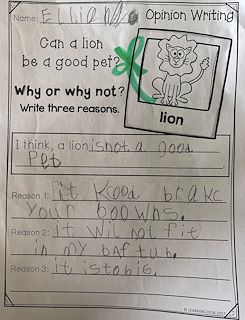 Name: Elliana
Opinion Writing
Can a lion
be a good pet?
Why or why not?
Write three reasons.
lion
I think, a lion is not a good
Pet
Reason 1: it kood brake
your boowns.
Reason 2: it wil not fit
in my baftub.
Reason 3: it is to big.